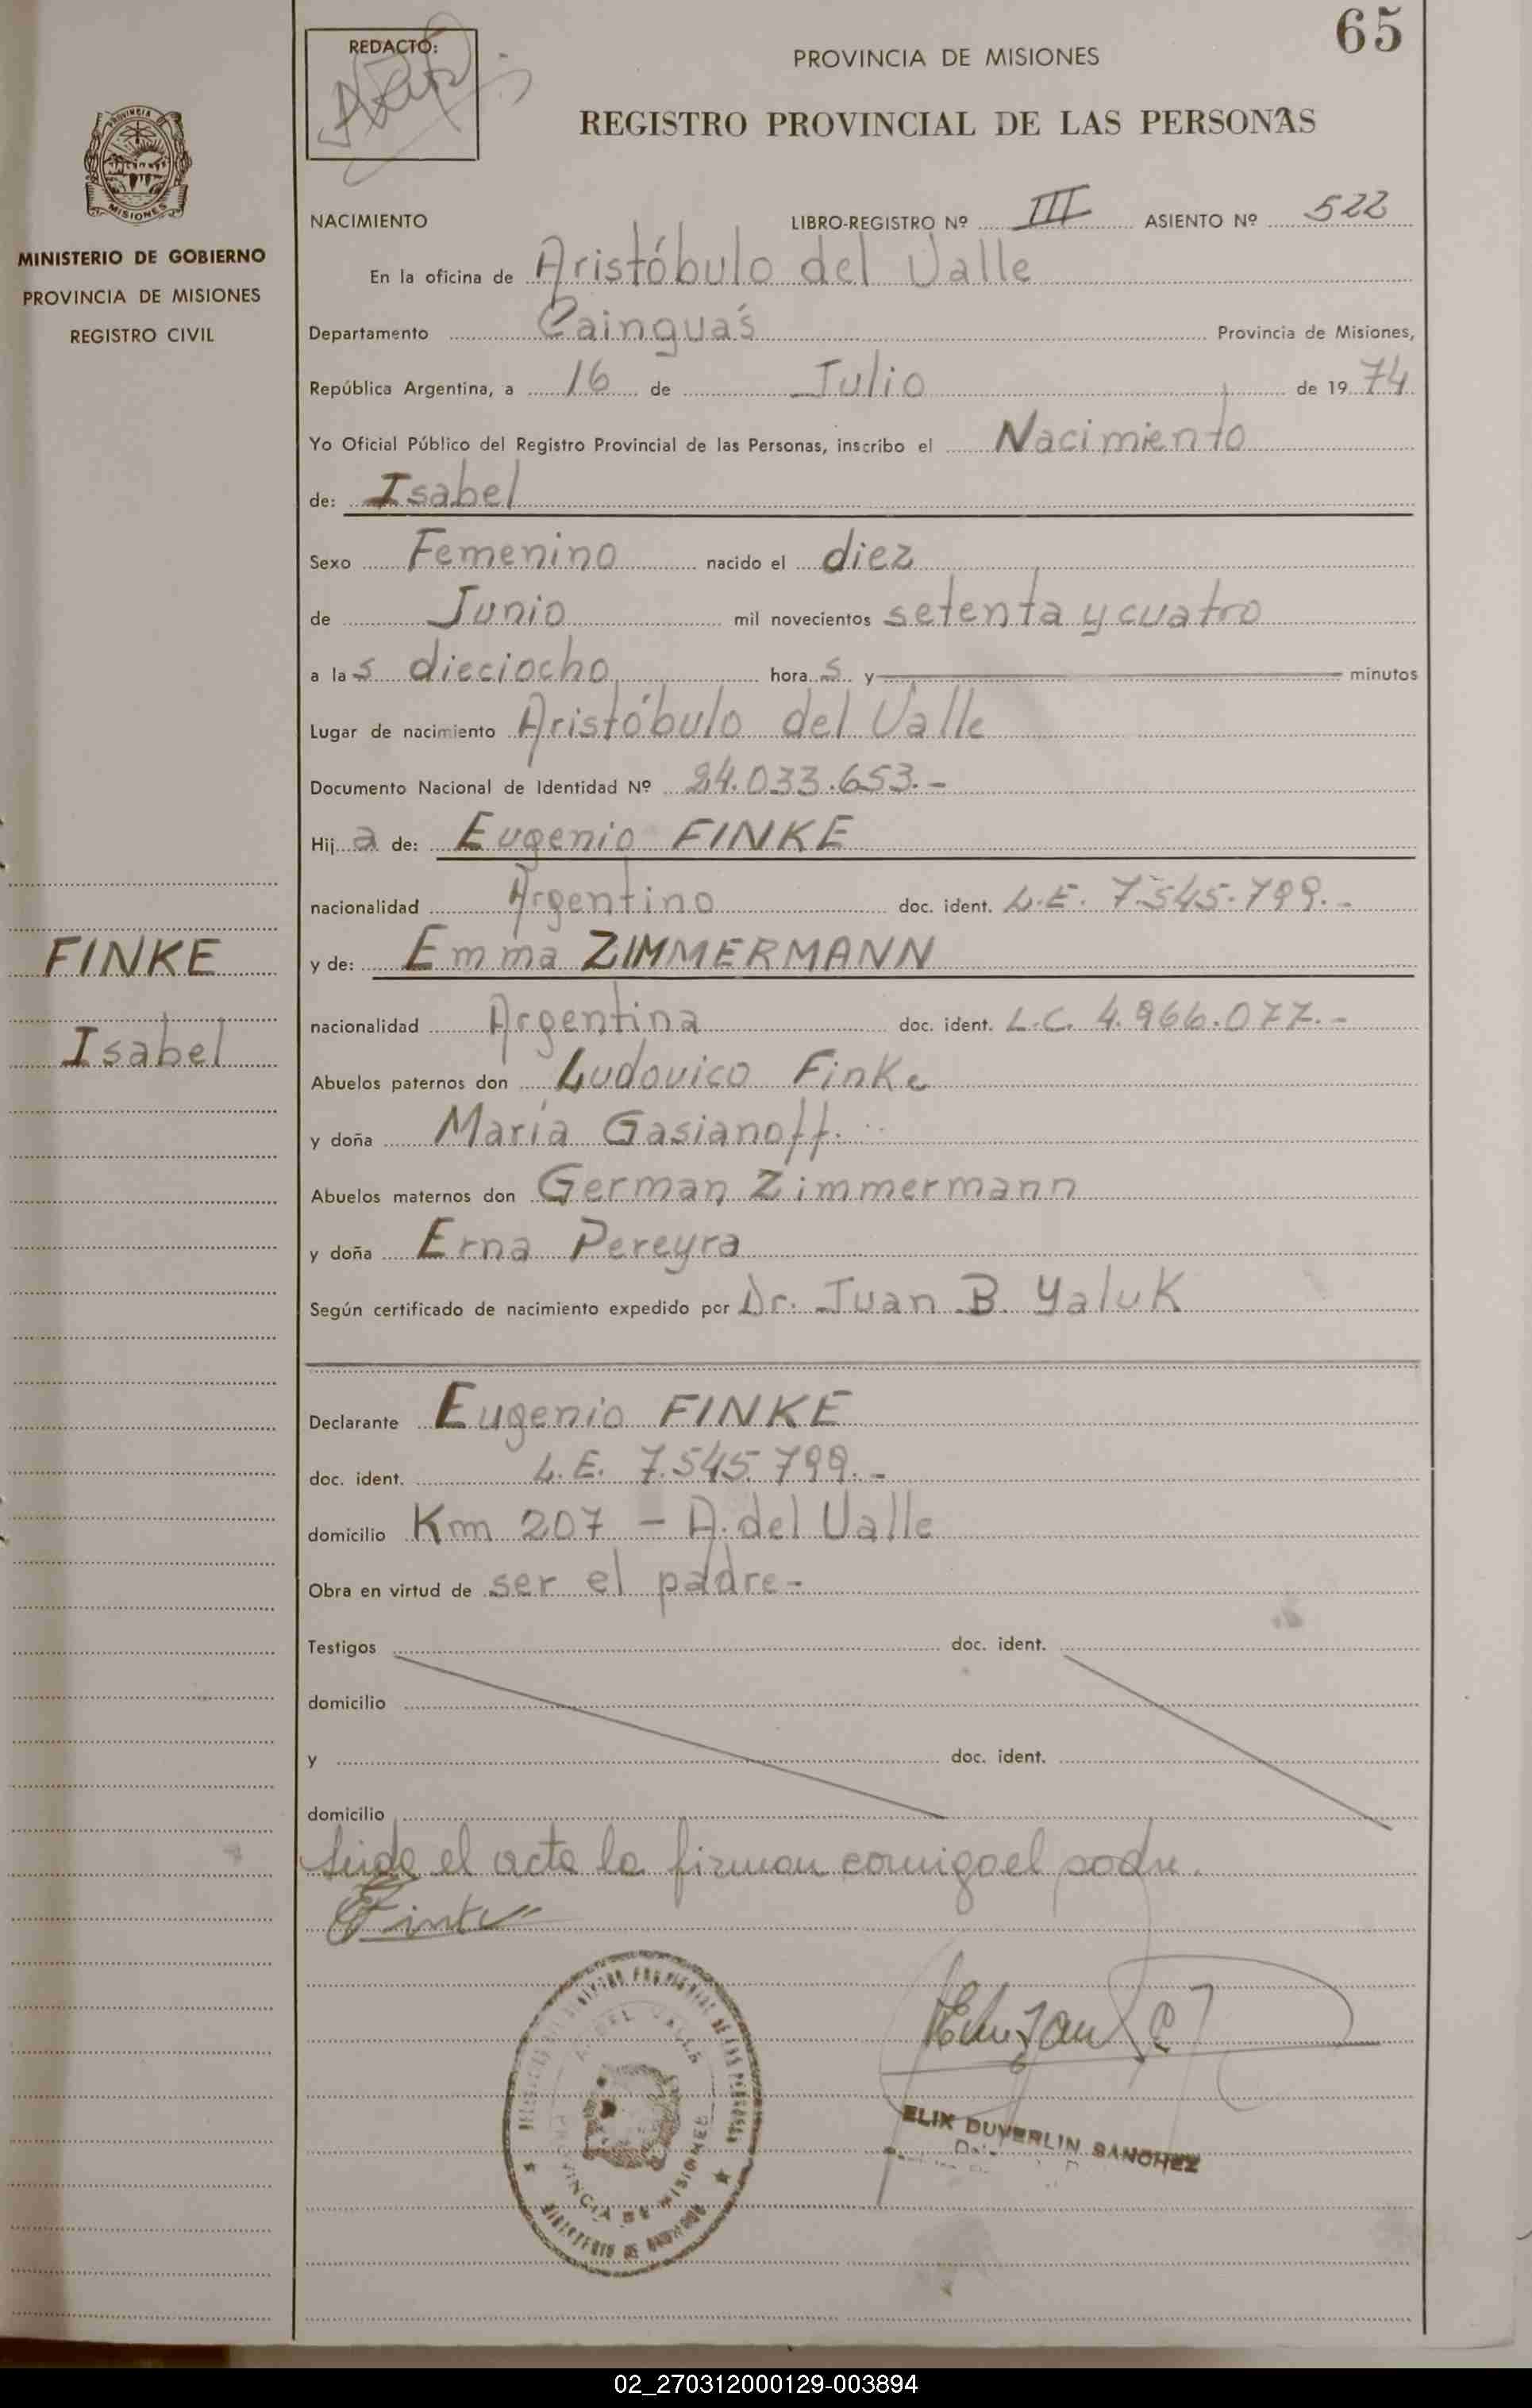 65
REDACTÓ:
PROVINCIA DE MISIONES
REGISTRO PROVINCIAL DE LAS PERSONAS
MISIONES
MINISTERIO DE GOBIERNO
PROVINCIA DE MISIONES
REGISTRO CIVIL
NACIMIENTO LIBRO-REGISTRO Nº III ASIENTO Nº 522
En la oficina de Aristóbulo del Valle
Departamento Cainguás Provincia de Misiones,
República Argentina, a 16 de Julio de 1974
Yo Oficial Público del Registro Provincial de las Personas, inscribo el Nacimiento
de: Isabel
Sexo Femenino nacido el diez
de Junio mil novecientos setenta y cuatro
a las dieciocho horas y minutos
Lugar de nacimiento Aristóbulo del Valle
Documento Nacional de Identidad Nº 24.033.653.-
Hija de: Eugenio FINKE
nacionalidad Argentino doc. ident. L.E. 7.545.799.-
FINKE
y de: Emma ZIMMERMANN
nacionalidad Argentina doc. ident. L.C. 4.966.077.-
Isabel
Abuelos paternos don Ludovico Finke
y doña María Gasianoff.
Abuelos maternos don German Zimmermann
y doña Erna Pereyra
Según certificado de nacimiento expedido por Dr. Juan B. Yaluk
Declarante Eugenio FINKE
doc. ident. L.E. 7.545.799.-
domicilio Km 207 - A. del Valle
Obra en virtud de ser el padre-
Testigos doc. ident.
domicilio
y doc. ident.
domicilio
el acta la firman conmigo el padre.
Finke
ELIX DUVERLIN SANCHEZ
PROVINCIA DE MISIONES
MINISTERIO DE GOBIERNO
02_270312000129-003894